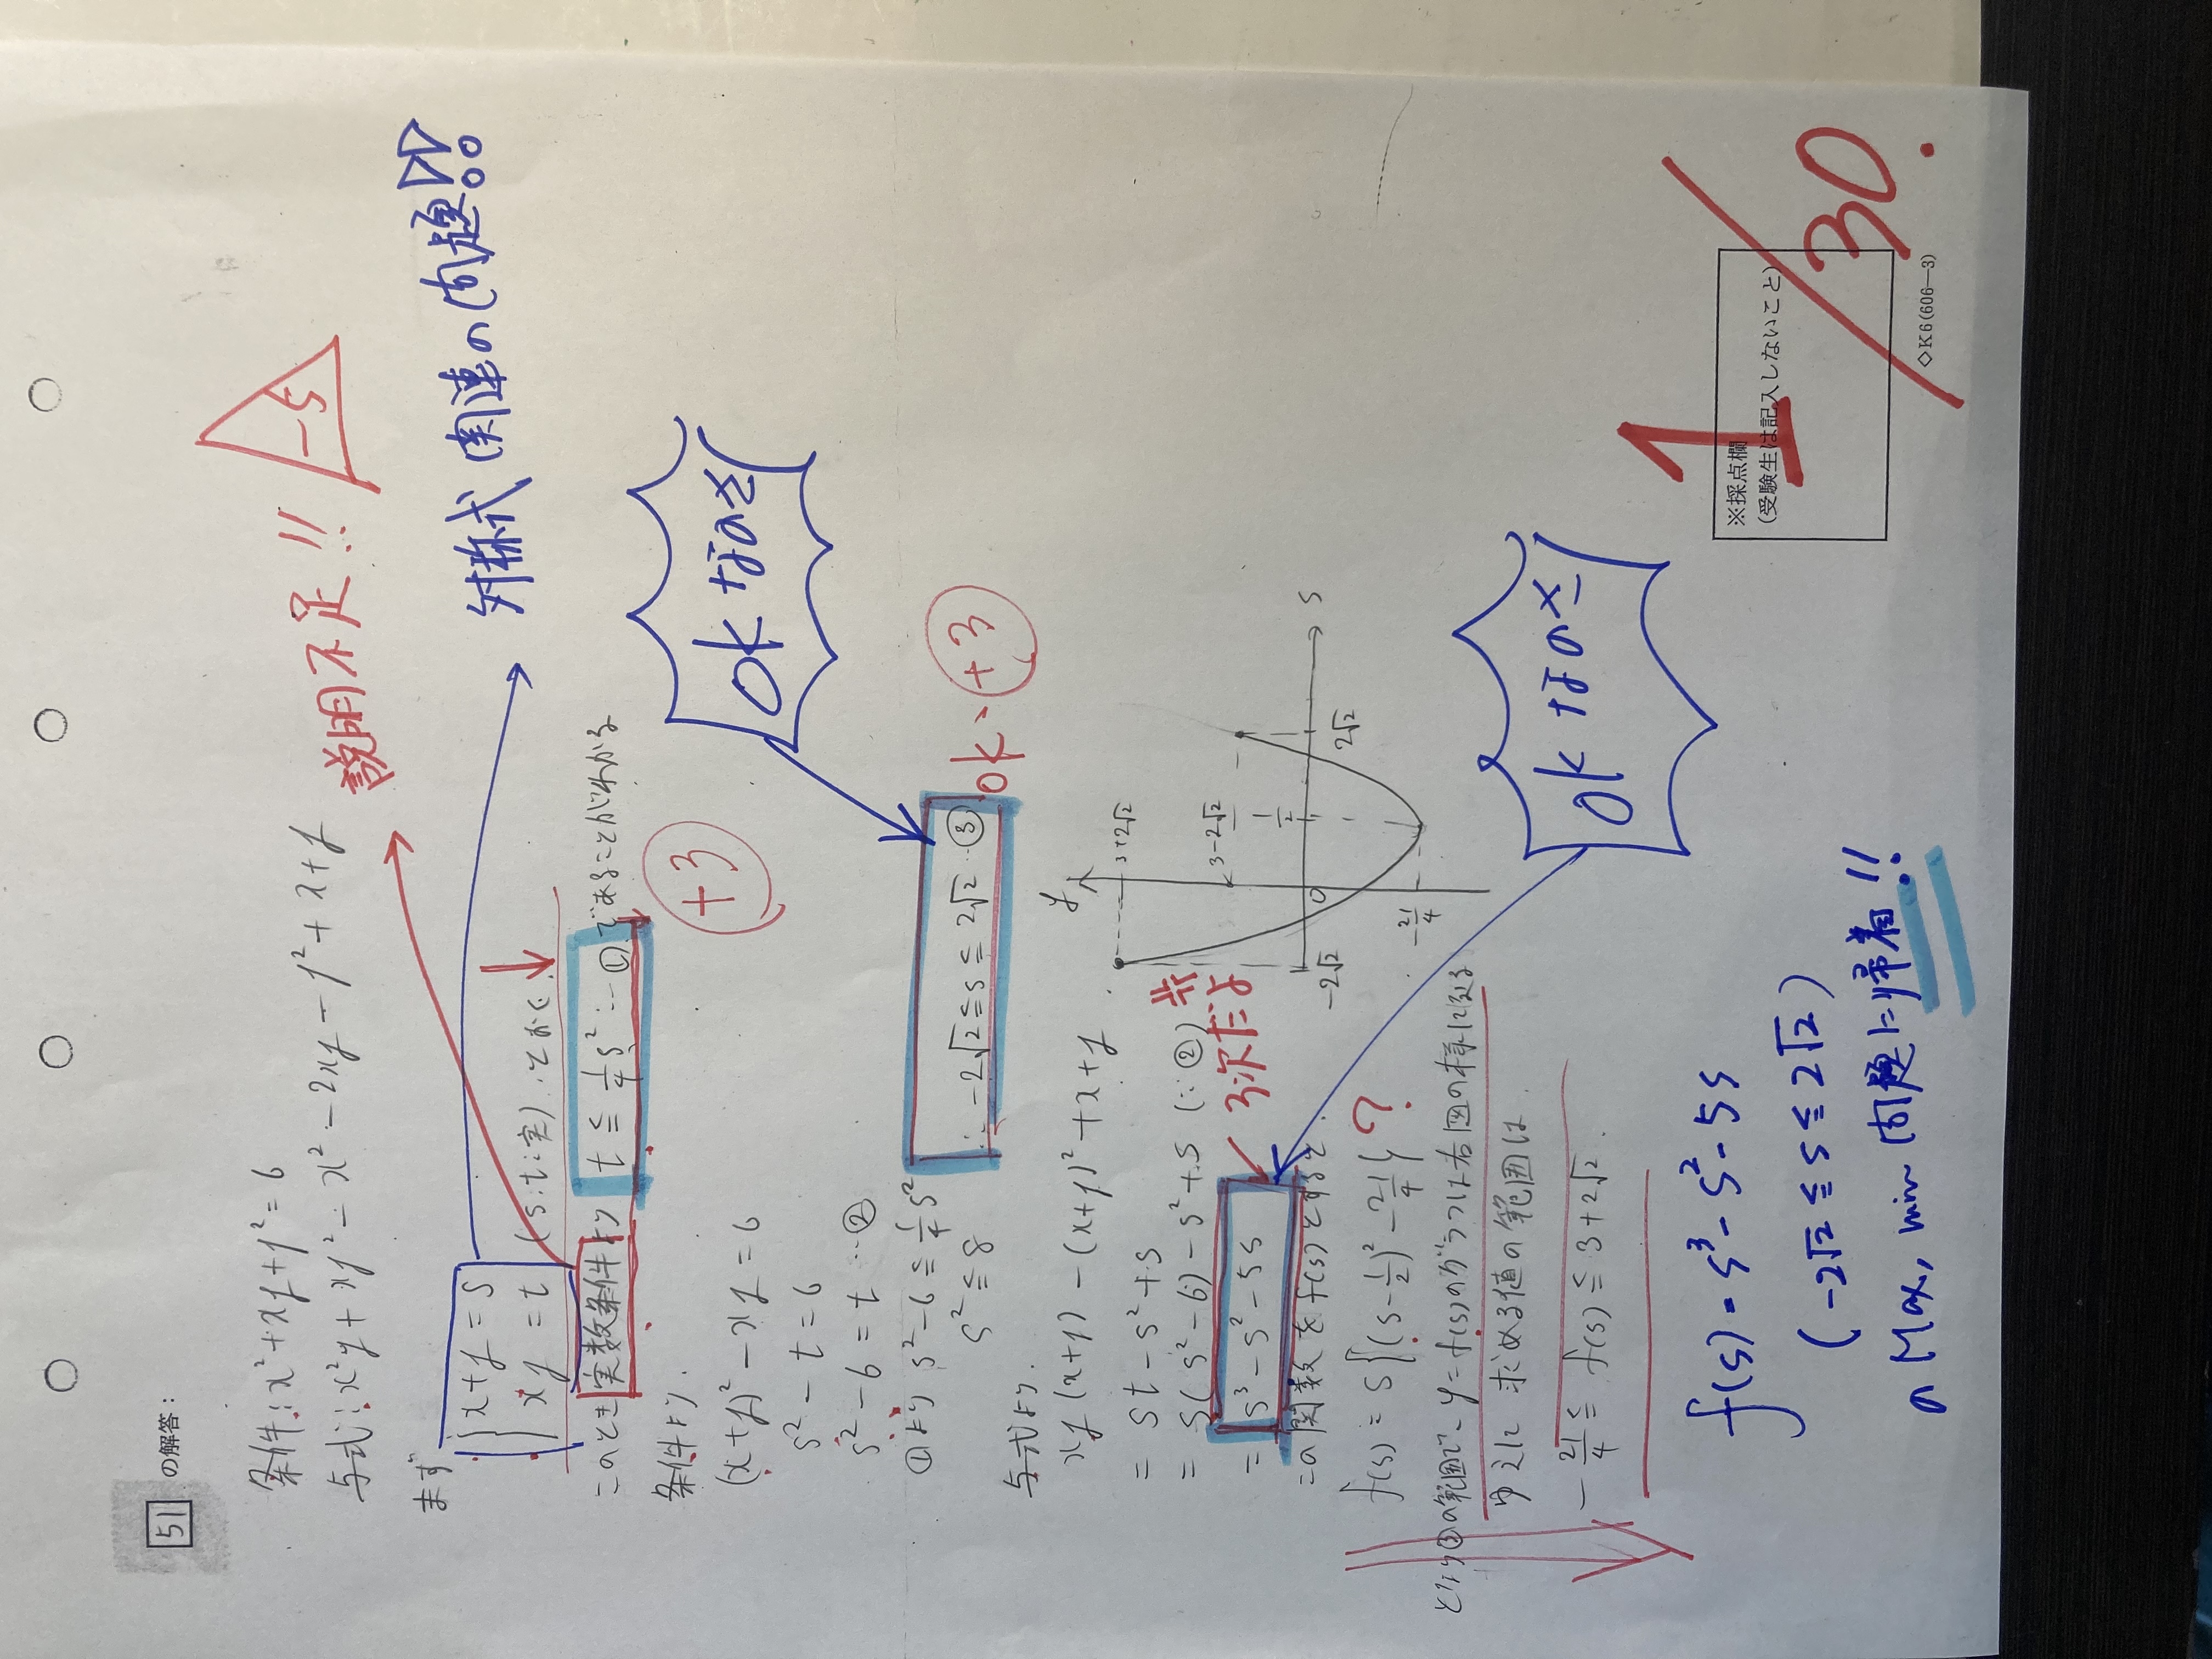 51 の解答:
条件:x²+xy+y²=6
与式:x²y+xy²-x²-2xy-y²+x+y
説明不足!! -5
まず
{x+y=s
xy=t (s,t:実).とおく.
対称式関連の問題!!
このとき実数条件より t≦1/4s² …① であることがわかる
+3
条件より.
(x+y)²-xy=6
s²-t=6
s²-6=t …②
OKなのさ
①より s²-6≦1/4s²
s²≦8 ∴-2√2≦s≦2√2 …③ OK、+3
与式より.
xy(x+y)-(x+y)²+x+y
=st-s²+s
=s(s²-6)-s²+s (∵②)
=s³-s²-5s
3次だよ
この関数をf(s)とすると.
f(s)=s{(s-1/2)²-21/4} ?
となり③の範囲で、y=f(s)のグラフは右図の様になる
ゆえに 求める値の範囲は
-21/4≦f(s)≦3+2√2.
y
3+2√2
3-2√2
1/2
-2√2 0 2√2 s
-21/4
OKなのさ
f(s)=s³-s²-5s
(-2√2≦s≦2√2)
のMax, min問題に帰着!!
※採点欄
(受験生は記入しないこと)
1/30.
◇K6(606—3)